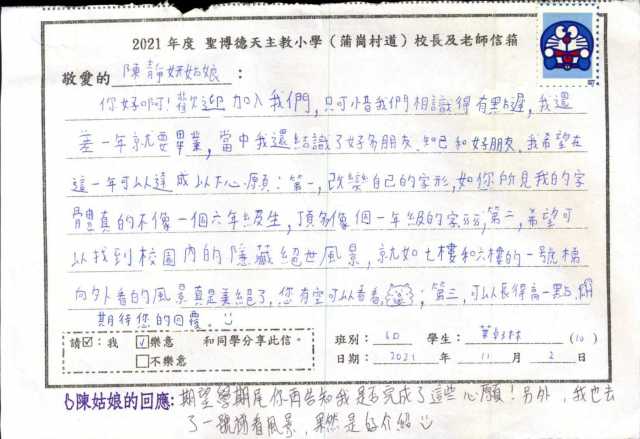 2021 年度 聖博德天主教小學（蒲崗村道）校長及老師信箱
敬愛的 陳靜妍姑娘 ：
你好啊!歡迎加入我們,只可惜我們相識得有點遲,我還
差一年就要畢業,當中我還結識了好多朋友、知己和好朋友。我希望在
這一年可以達成以下心願：第一,改變自己的字形,如你所見我的字
體真的不像一個六年級生,頂多像個一年級的字;第二,希望可
以找到校園內的隱藏絕世風景,就如七樓和六樓的一號樓
向外看的風景真是美絕了,您有空可以看看;第三,可以長得高一點點。
期待您的回覆。
請☑：我 ☑樂意 和同學分享此信。
□不樂意
班別： 6D 學生： (10)
日期： 2021 年 11 月 2 日
陳姑娘的回應: 期望學期尾你再告知我是否完成了這些心願！另外，我也去
了一號梯看風景，果然是好介紹